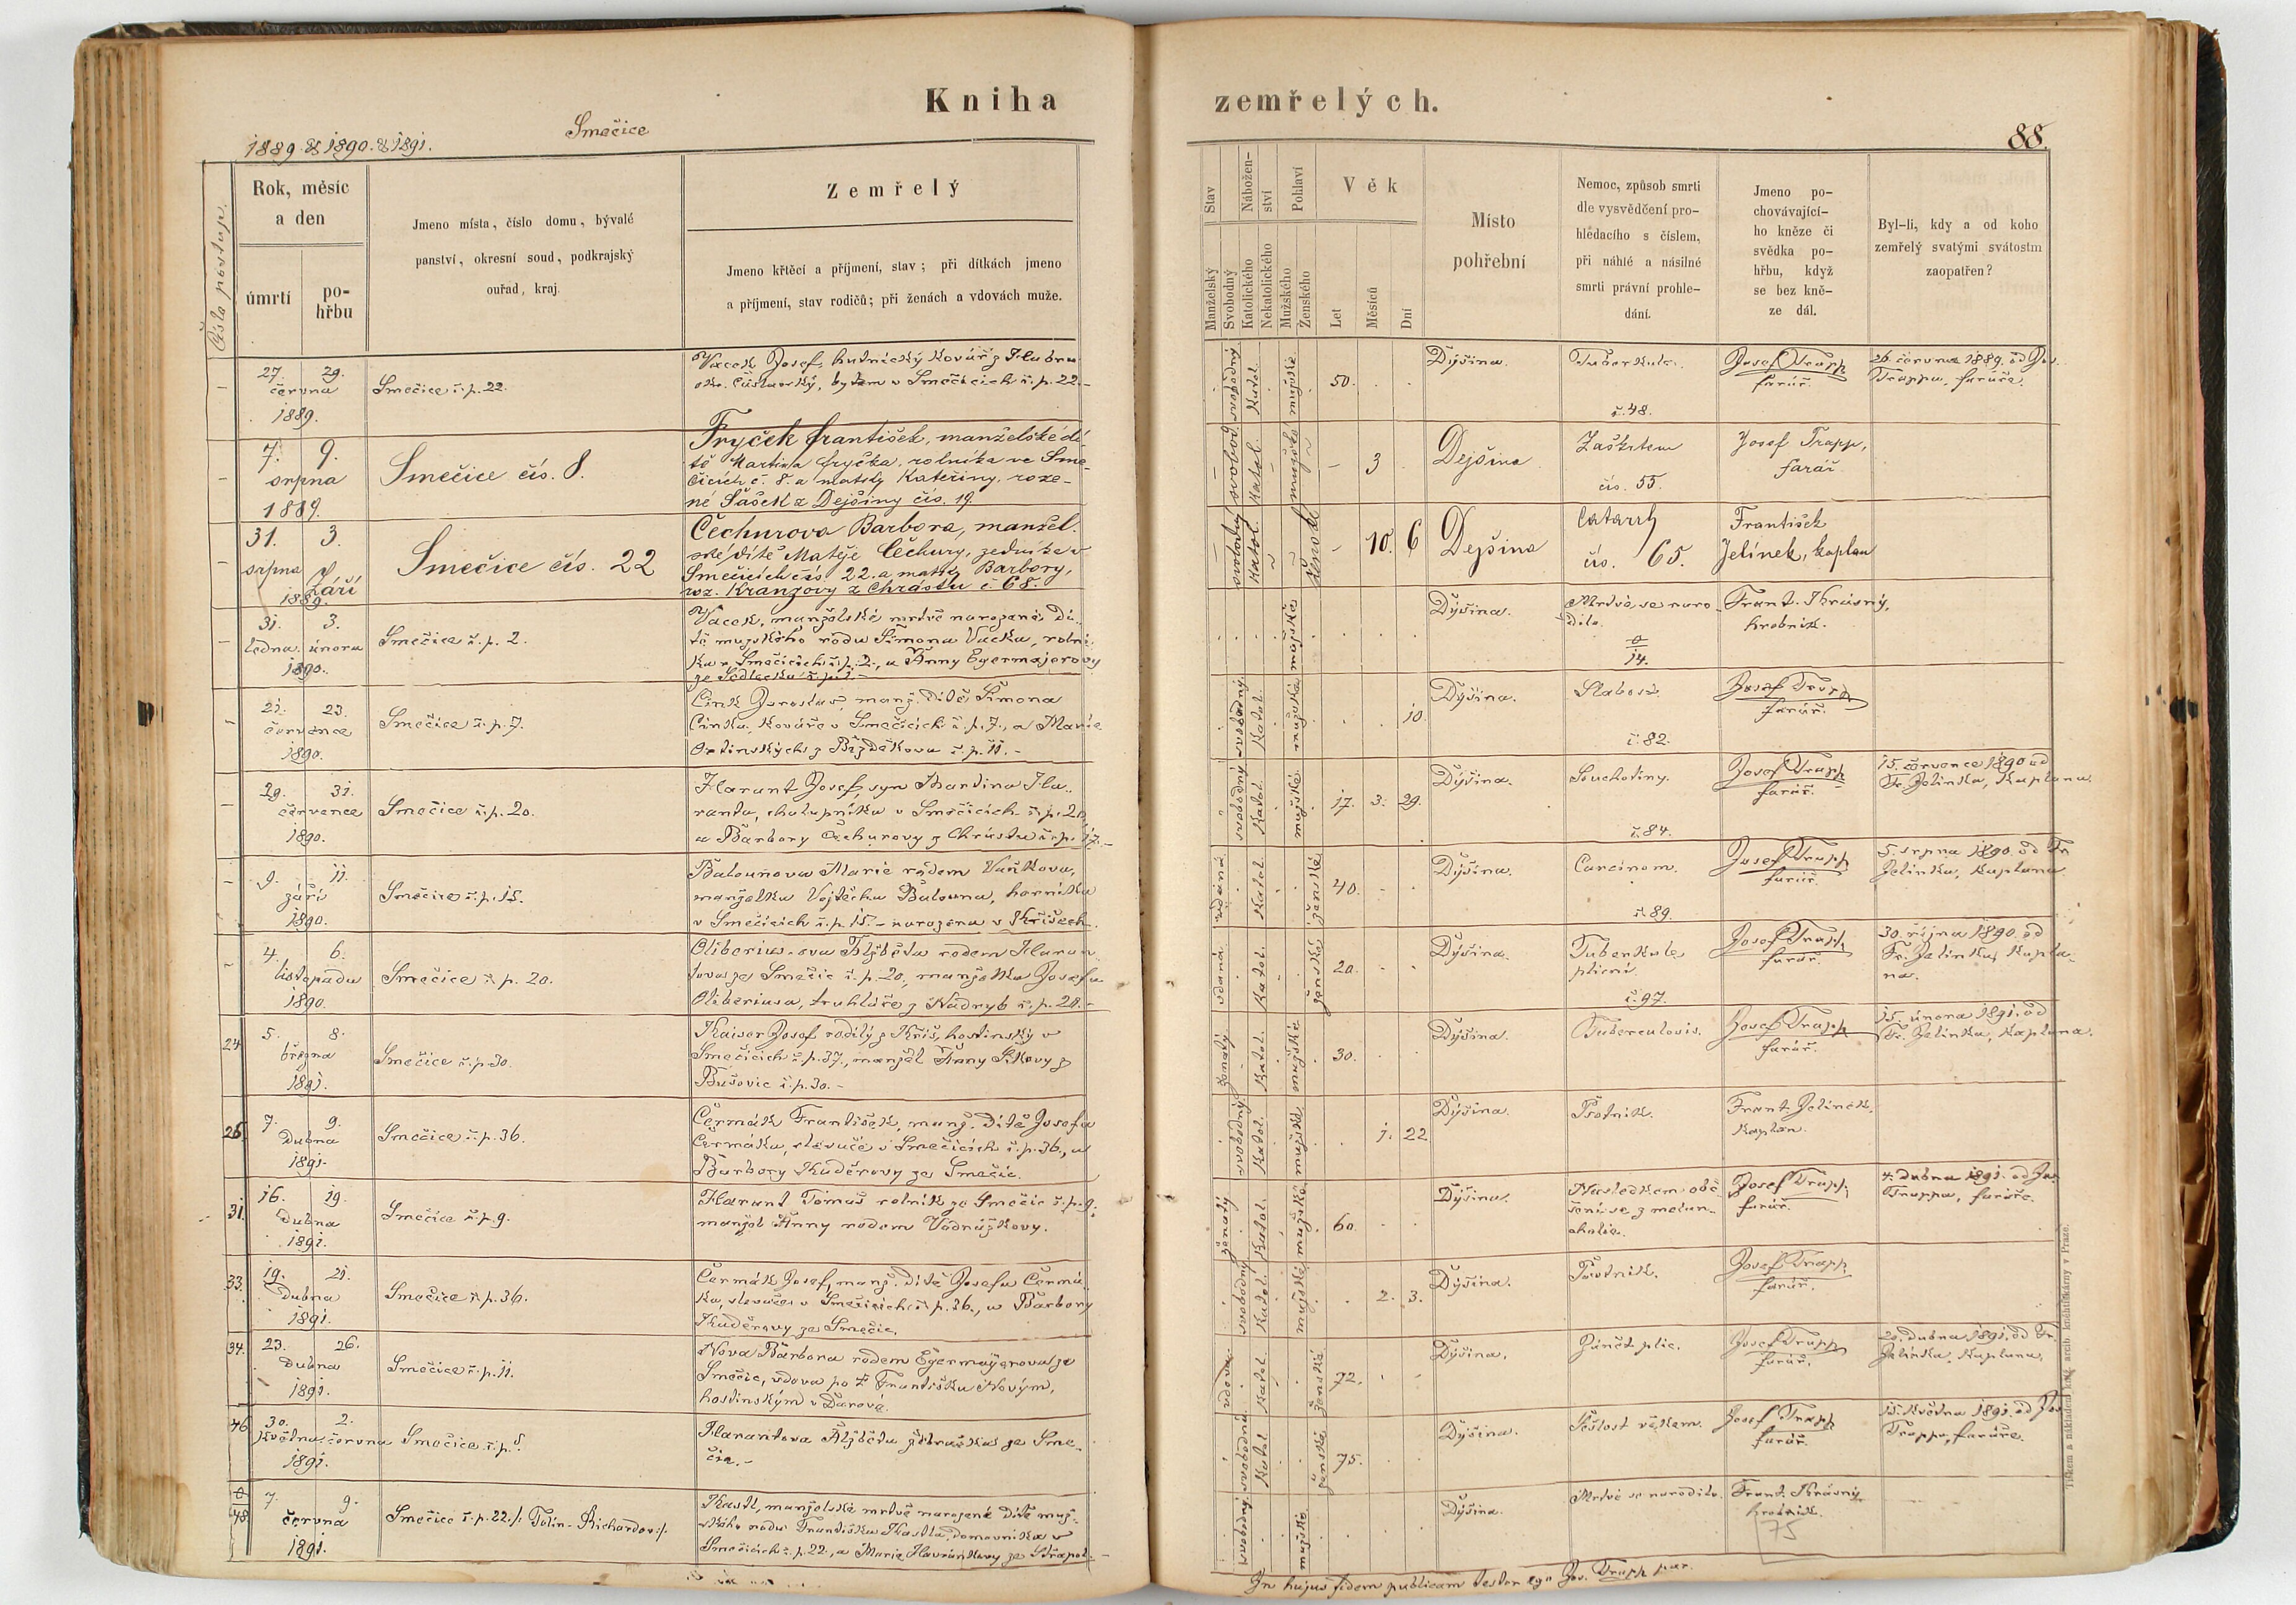 Kniha
zemřelých.
1889. & 1890. & 1891.
Smečice
88.
Čísla postup.
Rok, měsíc
a den
úmrtí
po-
hřbu
Jmeno místa, číslo domu, bývalé
panství, okresní soud, podkrajský
ouřad, kraj.
Zemřelý
Jmeno křtěcí a příjmení, stav; při dítkách jmeno
a příjmení, stav rodičů; při ženách a vdovách muže.
Stav
Manželský
Svobodný
Nábožen-
ství
Katolického
Nekatolického
Pohlaví
Mužského
Ženského
Věk
Let
Měsíců
Dní
Místo
pohřební
Nemoc, způsob smrti
dle vysvědčení pro-
hlédacího s číslem,
při náhlé a násilné
smrti právní prohle-
dání.
Jmeno po-
chovávající-
ho kněze či
svědka po-
hřbu, když
se bez kně-
ze dál.
Byl-li, kdy a od koho
zemřelý svatými svátostmi
zaopatřen?
27. 29.
června
1889.
Smečice č.p. 22.
Vacek Josef, hutnický kovář z
bytem v Smečicích č.p. 22.-
svobodný
Katol.
mužské
50.
Dýšina.
Tuberkule.
č. 48.
Josef Trapp
farář.
26. června 1889. od Jos.
Trappa, faráře.
7. 9.
srpna
1889.
Smečice čís. 8.
Fryček František, manželské dí-
tě Martina Fryčka, rolníka ve Sme-
čicích č. 8. a matky Kateřiny, roze-
né Šašek z Dejšiny čís. 19.
svobod.
Katol.
mužsko
3
Dejšina
Zaškrtem
čís. 55.
Josef Trapp,
farář
31. 3.
srpna září
1889.
Smečice čís. 22
Čechurova Barbora, manžel.
ské dítě Matěje Čechury, zedníka v
Smečicích čís. 22. a matky Barbory,
roz. Kranzovy z Chrástu č 68.
svobodný
Katol.
žensk.
10. 6
Dejšina
Catarrh
čís. 65.
František
Jelínek, kaplan
31. 3.
ledna. února
1890.
Smečice č. p. 2.
Vacek, manželské mrtvě narozené dí-
tě mužského rodu Šimona Vacka, rolní-
ka v Smečicích č.p. 2., a Anny Egermajerovy
ze Sedlecka č.p. 1.-
mužské
Dýšina.
Mrtvě se naro-
dilo.
0
14.
Frant. Krásný,
hrobník.
21. 23.
července
1890.
Smečice č.p. 7.
Cink Jaroslav, manž. dítě Šimona
Cinka, kováře v Smečicích č.p. 7., a Marie
z Bezděkova č.p. 11.-
svobodný
Katol.
mužské
10.
Dýšina.
Slabost.
č. 82.
Josef Trapp
farář.
29. 31.
července
1890.
Smečice č.p. 20.
Harant Josef, syn Martina Ha-
ranta, chalupníka v Smečicích č.p. 20,
a Barbory Čechurovy z Chrástu č.p. 17.-
svobodný
Katol.
mužské
17. 3. 29.
Dýšina.
Souchotiny.
č. 84.
Josef Trapp
farář.
15. července 1890 od
Fr. Jelínka, Kaplana.
9. 11.
září
1890.
Smečice č.p. 15.
Balounova Marie rodem Vaňkova,
manželka Vojtěcha Balouna, horníka
v Smečicích č.p. 15.- narozena v Kříších.
vdaná
Katol.
ženské
40.
Dýšina.
Carcinom.
č. 89.
Josef Trapp
farář.
5. srpna 1890. od Fr.
Jelínka, Kaplana.
4. 6.
listopadu
1890.
Smečice č. p. 20.
Oliberius-ova Alžběta rodem Haran-
tova ze Smečic č.p. 20, manželka Josefa
Oliberiusa, truhláře z Nadryb č.p. 28.-
vdaná
Katol.
ženské
20.
Dýšina.
Tuberkule
plicní
č. 97.
Josef Trapp
farář.
30. října 1890. od
Fr. Jelínka, Kapla-
na.
24
5. 8.
března
1891.
Smečice č.p. 30.
Kaiser Josef rodilý z Kříš, hostinský v
Smečicích č.p. 37., manžel Anny
Bušovic č.p. 30.-
ženatý
Katol.
mužské
30.
Dýšina.
Tuberculosis.
Josef Trapp
farář.
15. února 1891. od
Fr. Jelínka, Kaplana.
26.
7. 9.
Dubna
1891.
Smečice č.p. 36.
Čermák František, manž. dítě Josefa
Čermáka, slevače v Smečicích č.p. 36., a
Barbory Kuděrovy ze Smečic.
svobodný
Katol.
mužské
1. 22.
Dýšina.
Psotník.
Frant. Jelínek,
kaplan.
31.
16. 19.
Dubna
1891.
Smečice č.p. 9.
Harant Tomáš rolník ze Smečic č.p. 9.
manžel Anny rodem Vodrážkovy.
ženatý
Katol.
mužské
60.
Dýšina.
Následkem obě-
šení se z melan-
cholie.
Josef Trapp
farář.
4. dubna 1891. od Jos.
Trappa, faráře.
33.
19. 21.
Dubna
1891.
Smečice č.p. 36.
Čermák Josef, manž. dítě Josefa Čermá-
ka, slevače v Smečicích č.p. 36., a Barbory
Kuděrovy ze Smečic.
svobodný
Katol.
mužské
2. 3.
Dýšina.
Psotník.
Josef Trapp
farář.
34.
23. 26.
Dubna
1891.
Smečice č.p. 11.
Nova Barbora rodem Egermayerova ze
Smečic, vdova po † Františku Novým,
hostinským v Darové.
vdova.
Katol.
ženské
72.
Dýšina.
Zánět plic.
Josef Trapp
farář.
20. dubna 1891. od Fr.
Jelínka, Kaplana.
46
30. 2.
Května. června
1891.
Smečice č.p. 5.
Harantova Alžběta žebračka ze Sme-
čic.-
svobodná
Katol.
ženské
75.
Dýšina.
Sešlost věkem.
Josef Trapp
farář.
15. Května 1891. od Jos.
Trappa, faráře.
0
48.
7. 9.
června
1891.
Smečice č.p. 22./: Tolin-Richardov:/.
Kastl, manželské mrtvě narozené dítě muž-
ského rodu Františka Kastla, domovníka v
Smečicích č.p. 22., a Marie Havránkovy ze
svobodný
mužské
Dýšina.
Mrtvě se narodilo.
Frant. Krásný
hrobník.
75
In hujus fidem publicam testor ego Jos. Trapp par.
Tiskem a nákladem kníž. arcib. knihtiskárny v Praze.